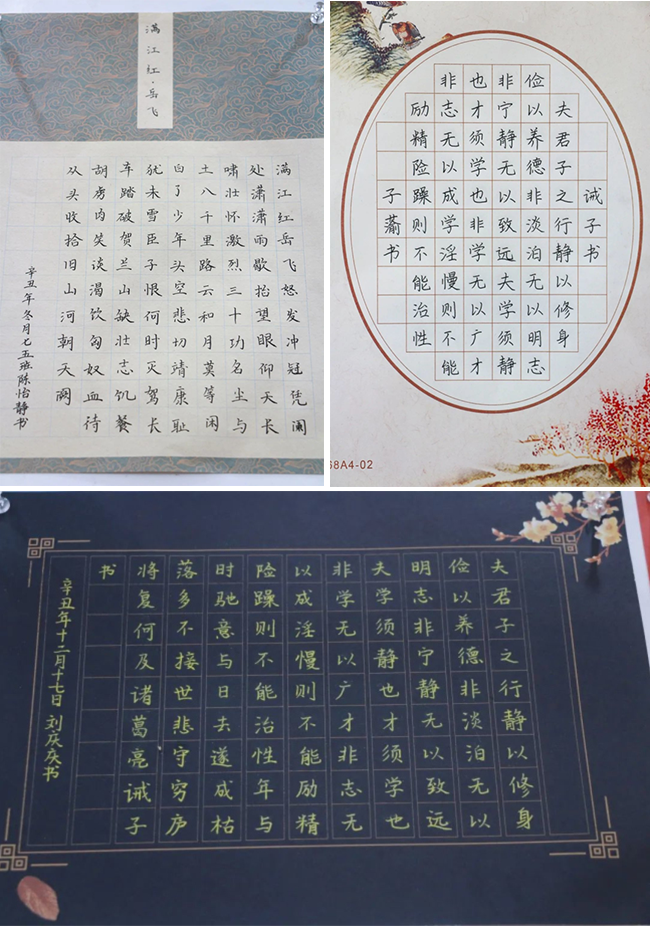 满江红·岳飞
满江红岳飞怒发冲冠凭阑
处潇潇雨歇抬望眼仰天长
啸壮怀激烈三十功名尘与
土八千里路云和月莫等闲
白了少年头空悲切靖康耻
犹未雪臣子恨何时灭驾长
车踏破贺兰山缺壮志饥餐
胡虏肉笑谈渴饮匈奴血待
从头收拾旧山河朝天阙
辛丑年冬月七五班陈怡静书
诫子书
夫君子之行静以修身
俭以养德非淡泊无以明志
非宁静无以致远夫学须静
也才须学也非学无以广才
非志无以成学淫慢则不能
励精险躁则不能治性
子书
68A4-02
夫君子之行静以修身
俭以养德非淡泊无以
明志非宁静无以致远
夫学须静也才须学也
非学无以广才非志无
以成淫慢则不能励精
险躁则不能治性年与
时驰意与日去遂成枯
落多不接世悲守穷庐
将复何及诸葛亮诫子
书
辛丑年十二月十七日刘庆庆书